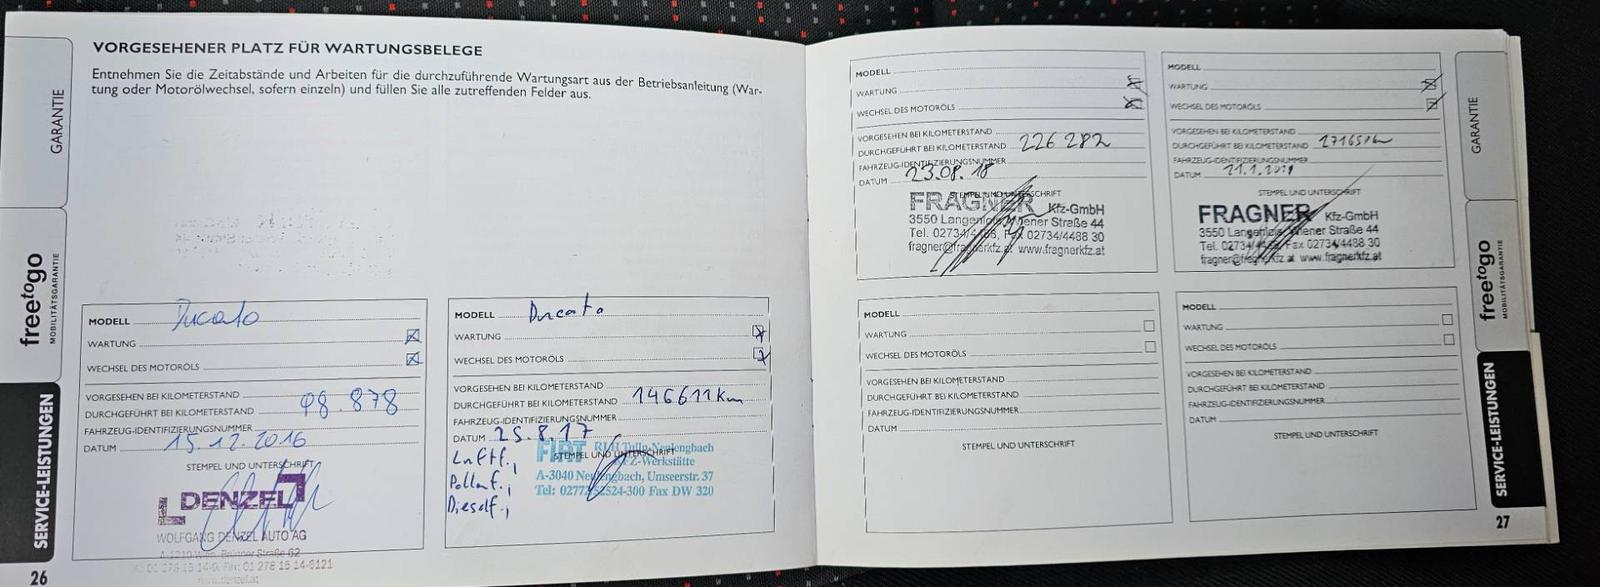 VORGESEHENER PLATZ FÜR WARTUNGSBELEGE
Entnehmen Sie die Zeitabstände und Arbeiten für die durchzuführende Wartungsart aus der Betriebsanleitung (War-
tung oder Motorölwechsel, sofern einzeln) und füllen Sie alle zutreffenden Felder aus.
GARANTIE
freetogo
MOBILITÄTSGARANTIE
SERVICE-LEISTUNGEN
26
MODELL Ducato
WARTUNG
WECHSEL DES MOTORÖLS
VORGESEHEN BEI KILOMETERSTAND
DURCHGEFÜHRT BEI KILOMETERSTAND 98.878
FAHRZEUG-IDENTIFIZIERUNGSNUMMER
DATUM 15.12.2016
STEMPEL UND UNTERSCHRIFT
DENZEL
WOLFGANG DENZEL AUTO AG
MODELL Ducato
WARTUNG
WECHSEL DES MOTORÖLS
VORGESEHEN BEI KILOMETERSTAND
DURCHGEFÜHRT BEI KILOMETERSTAND 146611 km
FAHRZEUG-IDENTIFIZIERUNGSNUMMER
DATUM 25.8.17
Luftf.,
Pollenf.,
Dieself.,
STEMPEL UND UNTERSCHRIFT
FIAT Tulln-Neulengbach
KFZ-Werkstätte
A-3040 Neulengbach, Umseerstr. 37
Tel: 02772/52524-300 Fax DW 320
MODELL
WARTUNG
WECHSEL DES MOTORÖLS
VORGESEHEN BEI KILOMETERSTAND
DURCHGEFÜHRT BEI KILOMETERSTAND 226 282
FAHRZEUG-IDENTIFIZIERUNGSNUMMER
DATUM 23.08.18
STEMPEL UND UNTERSCHRIFT
FRAGNER Kfz-GmbH
3550 Langenlois, Wiener Straße 44
Tel. 02734/4488, Fax 02734/4488 30
fragner@fragnerkfz.at www.fragnerkfz.at
MODELL
WARTUNG
WECHSEL DES MOTORÖLS
VORGESEHEN BEI KILOMETERSTAND
DURCHGEFÜHRT BEI KILOMETERSTAND
FAHRZEUG-IDENTIFIZIERUNGSNUMMER
DATUM
STEMPEL UND UNTERSCHRIFT
FRAGNER Kfz-GmbH
3550 Langenlois, Wiener Straße 44
Tel. 02734/4488, Fax 02734/4488 30
fragner@fragnerkfz.at www.fragnerkfz.at
MODELL
WARTUNG
WECHSEL DES MOTORÖLS
VORGESEHEN BEI KILOMETERSTAND
DURCHGEFÜHRT BEI KILOMETERSTAND
FAHRZEUG-IDENTIFIZIERUNGSNUMMER
DATUM
STEMPEL UND UNTERSCHRIFT
MODELL
WARTUNG
WECHSEL DES MOTORÖLS
VORGESEHEN BEI KILOMETERSTAND
DURCHGEFÜHRT BEI KILOMETERSTAND
FAHRZEUG-IDENTIFIZIERUNGSNUMMER
DATUM
STEMPEL UND UNTERSCHRIFT
GARANTIE
freetogo
MOBILITÄTSGARANTIE
SERVICE-LEISTUNGEN
27